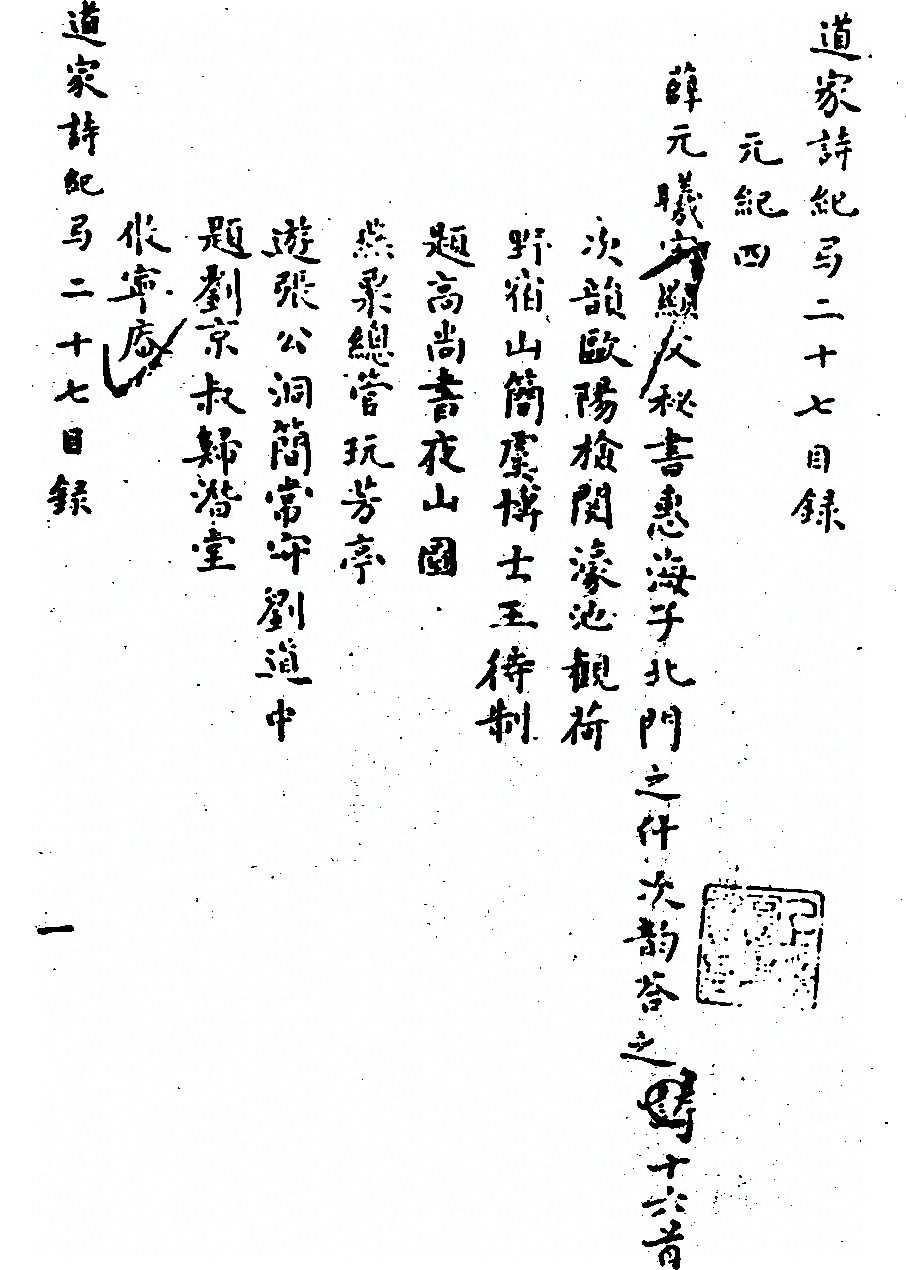 道家詩紀弓二十七目録
元紀四
薛元曦 顯父秘書惠海子北門之作次韻荅之 十六首
次韻歐陽檢閱濠池觀荷
野宿山簡虞博士王待制
題高尚書夜山圖
燕聚總管玩芳亭
遊張公洞簡常 劉道中
題劉京叔歸潛堂
倣寧庵
道家詩紀弓二十七目録
一